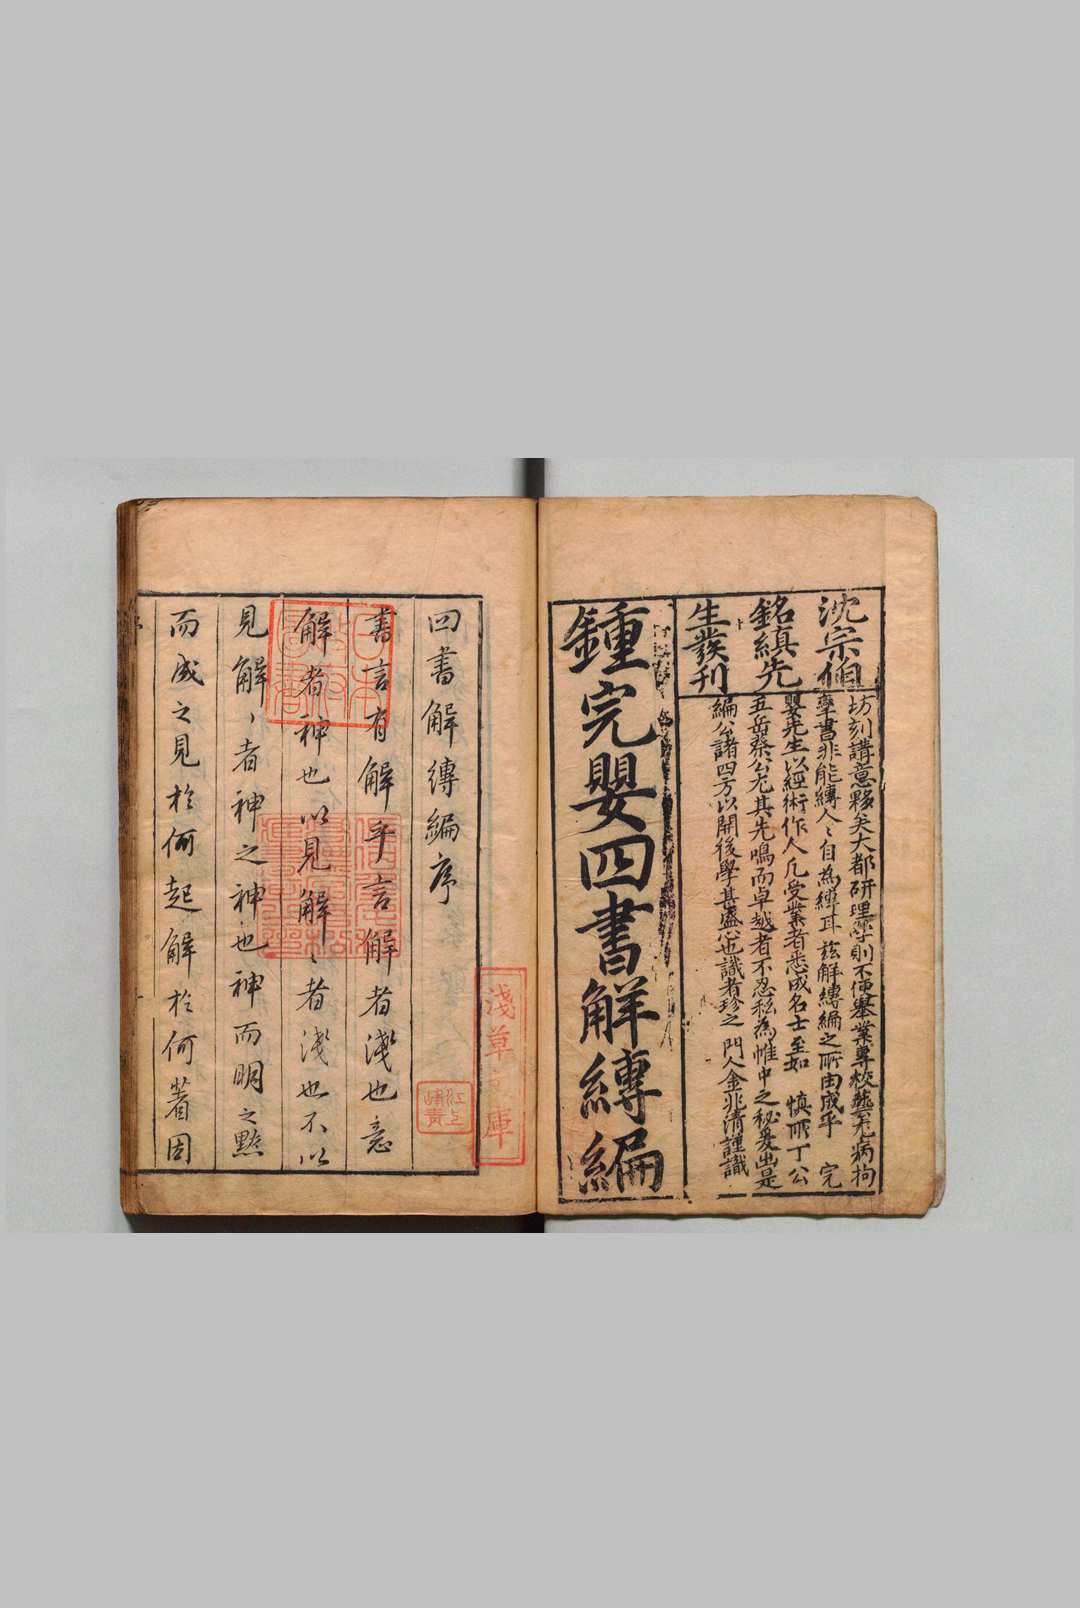 沈宗佀
銘縝先
生發刊
坊刻講意夥矣大都研理學則不便舉業專校藝尤病拘
攣書非能縛人〻自為縛耳茲解縛編之所由成乎　完
嬰先生以經術作人凡受業者悉成名士至如　慎所丁公
五岳蔡公尤其先鳴而卓越者不忍秘為帷中之秘爰出是
編公諸四方以開後學甚盛心也識者珍之　門人金兆清謹識
鍾完嬰四書解縛編
四書解縛編序
書言有解乎言解者淺也意
解者神也以見解〻者淺也不以
見解〻者神之神也神而明之點
而成之見於何起解於何着因
淺草文庫